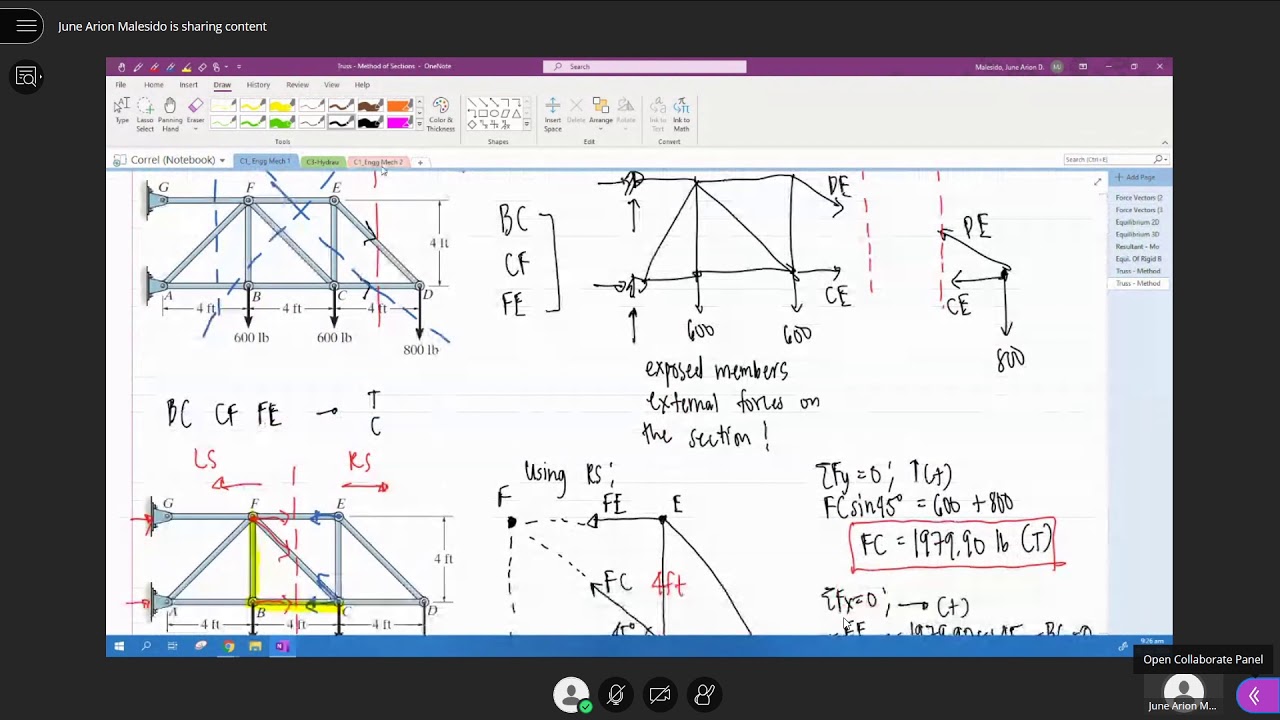 June Arion Malesido is sharing content
Truss - Method of Sections - OneNote
Search
Malesido, June Arion D.
MJ
File Home Insert Draw History Review View Help
Type
Lasso Select
Panning Hand
Eraser
Color & Thickness
Insert Space
Delete
Arrange
Rotate
Ink to Text
Ink to Math
Tools
Shapes
Edit
Convert
Correl (Notebook)
C1_ Engg Mech 1
C3-Hydrau
C1_Engg Mech 2
+
Search (Ctrl+E)
Add Page
Force Vectors (2
Force Vectors (3
Equilibrium 2D
Equilibrium 3D
Resultant - Mo
Equi. Of Rigid B
Truss - Method
Truss - Method
G F E
4 ft
A B C D
4 ft 4 ft 4 ft
600 lb 600 lb
800 lb
BC
CF
FE
DE
CE
600 600
DE
CE
800
exposed members
external forces on
the section!
BC CF FE → T
C
LS RS
G F E
4 ft
A B C D
4 ft 4 ft 4 ft
Using RS:
F FE E
FC
4ft
45°
ΣFy=0; ↑(+)
FCsin45° = 600 + 800
FC = 1979.90 lb (T)
ΣFx=0; → (+)
9:26 am
Open Collaborate Panel
June Arion M...